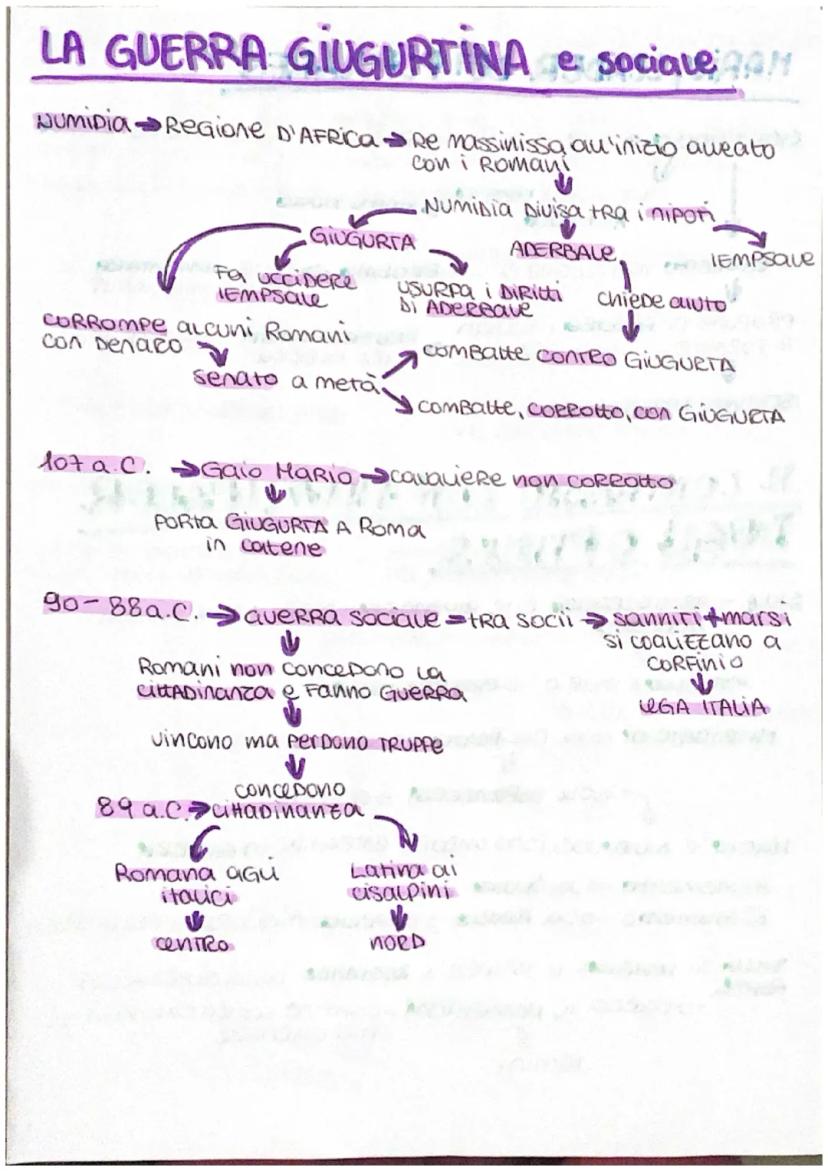 LA GUERRA GIUGURTINA e sociale
NUMIDIA → REGIONE D'AFRICA → Re massinissa, all'inizio alleato
con i Romani
NUMIDIA DIVISA tra i nipoti
GIUGURTA
ADERBALE
IEMPSALE
Fa uccidere
IEMPSALE
USURPA i DIRITTI
DI ADERBALE
chiede aiuto
CORROMPE alcuni Romani
con DENARO
combatte contro GIUGURTA
senato a metà
combatte, corrotto, con GIUGURTA
107 a.C. → GAIO MARIO → cavaliere non corrotto
PORTA GIUGURTA A ROMA
in catene
90-88 a.C. → GUERRA SOCIALE = tra socii → sanniti + marsi
si coalizzano a
CORFINIO
Romani non concedono la
cittadinanza e fanno GUERRA
LEGA ITALIA
vincono ma perdono truppe
concedono
89 a.C. → cittadinanza
Romana agli
italici
Latina ai
cisalpini
centro
NORD